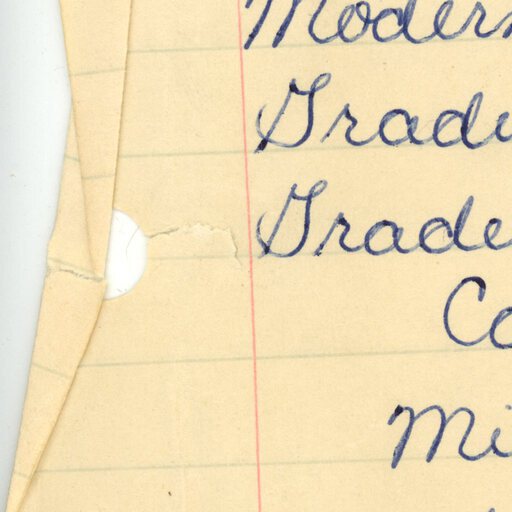 Modern
Gradu
Grade
Co
Mi